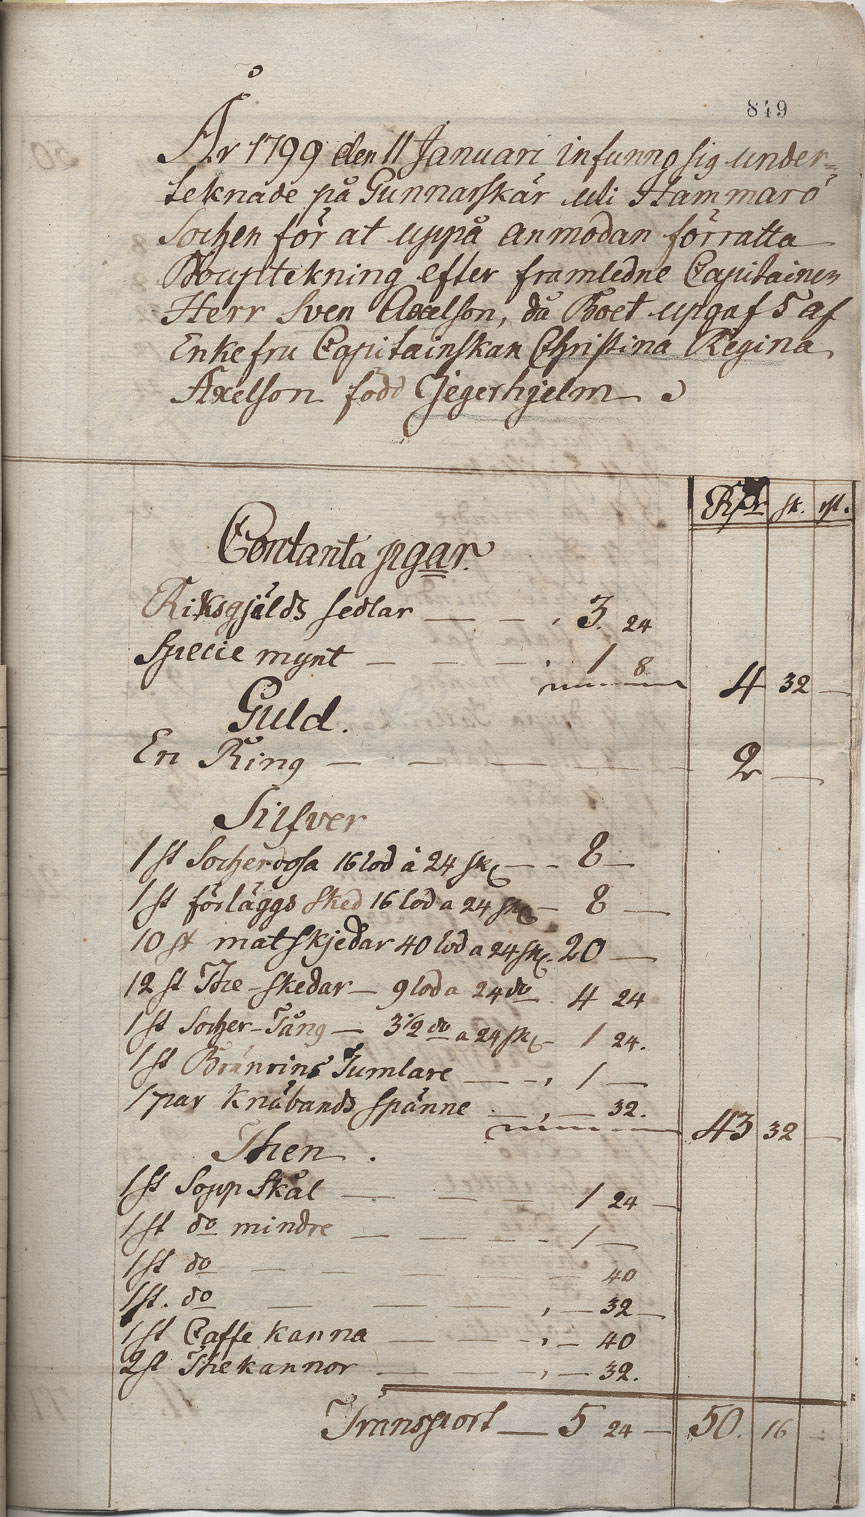 849
År 1799 den 11 Januari infunno sig under-
teknade på Gunnarskär uti Hammarö
Sochen för at uppå anmodan förrätta
Bouptekning efter framledne Capitainen
Herr Sven Axelson, då Boet upgafs af
Enkefru Capitainskan Christina Regina
Axelson född Jegerhjelm
Rdr sk. rst.
Contanta pgar.
Riksgjälds sedlar — — — 3. 24
Specie mynt — — — — 1 8.
4 32 —
Guld.
En Ring — — — — — — 2 —
Silfver
1 st Socherdosa 16 lod à 24 sk — - 8 —
1 st förläggs sked 16 lod a 24 sk — 8 —
10 st matskjedar 40 lod a 24 sk. 20 —
12 st The-skedar — 9 lod a 24 do 4 24
1 st Socher-Tång — 3 1/2 do a 24 sk - 1 24.
1 st Bränvins Tumlare — — 1 —
1 par Knäbands spänne — — 32.
43 32 —
Then.
1 st Sopp Skål — — — 1 24 —
1 st do mindre — — — — 1 —
1 st do — — — — — 40
1 st. do — — — — — 32 —
1 st Caffe kanna — — — 40
2 st Thekannor — — — — 32.
Transport — 5 24 — 50. 16 —